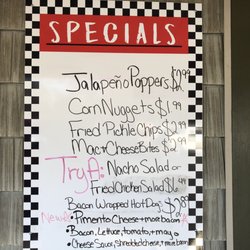 SPECIALS
Jalapeño Poppers $2.99
Corn Nuggets $1.99
Fried Pickle Chips $2.99
Mac + Cheese Bites $2.99
Try A: Nacho Salad or
Fried Chicken Salad
Bacon Wrapped Hot Dog:
New! • Pimento Cheese + more bacon
• Bacon, lettuce, tomato, + mayo
• Cheese Sauce, Shredded cheese, + more bacon